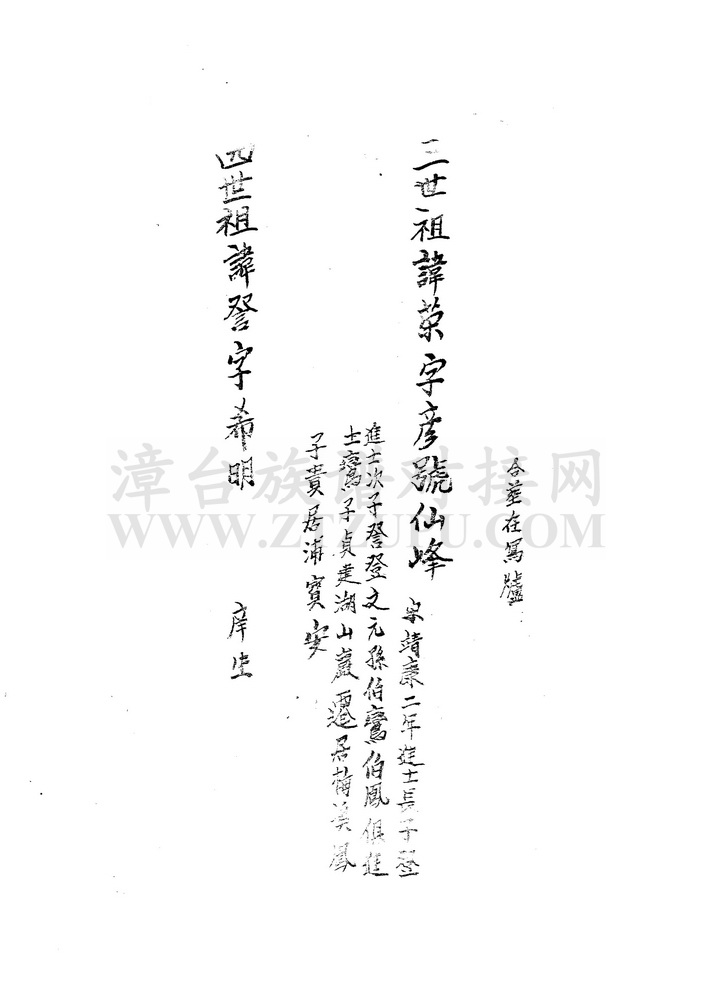 合塟在寫墟
三世祖諱荣字彦號仙峰
宋靖康二年進士長子登
進士次子詧登文元孫伯鸞伯鳳俱進
士鸞子貞建湖山巖遷居梅美鳳
子貴居浦寶
四世祖諱詧字希明
庠生
漳台族谱对接网
WWW.ZTZUPU.COM